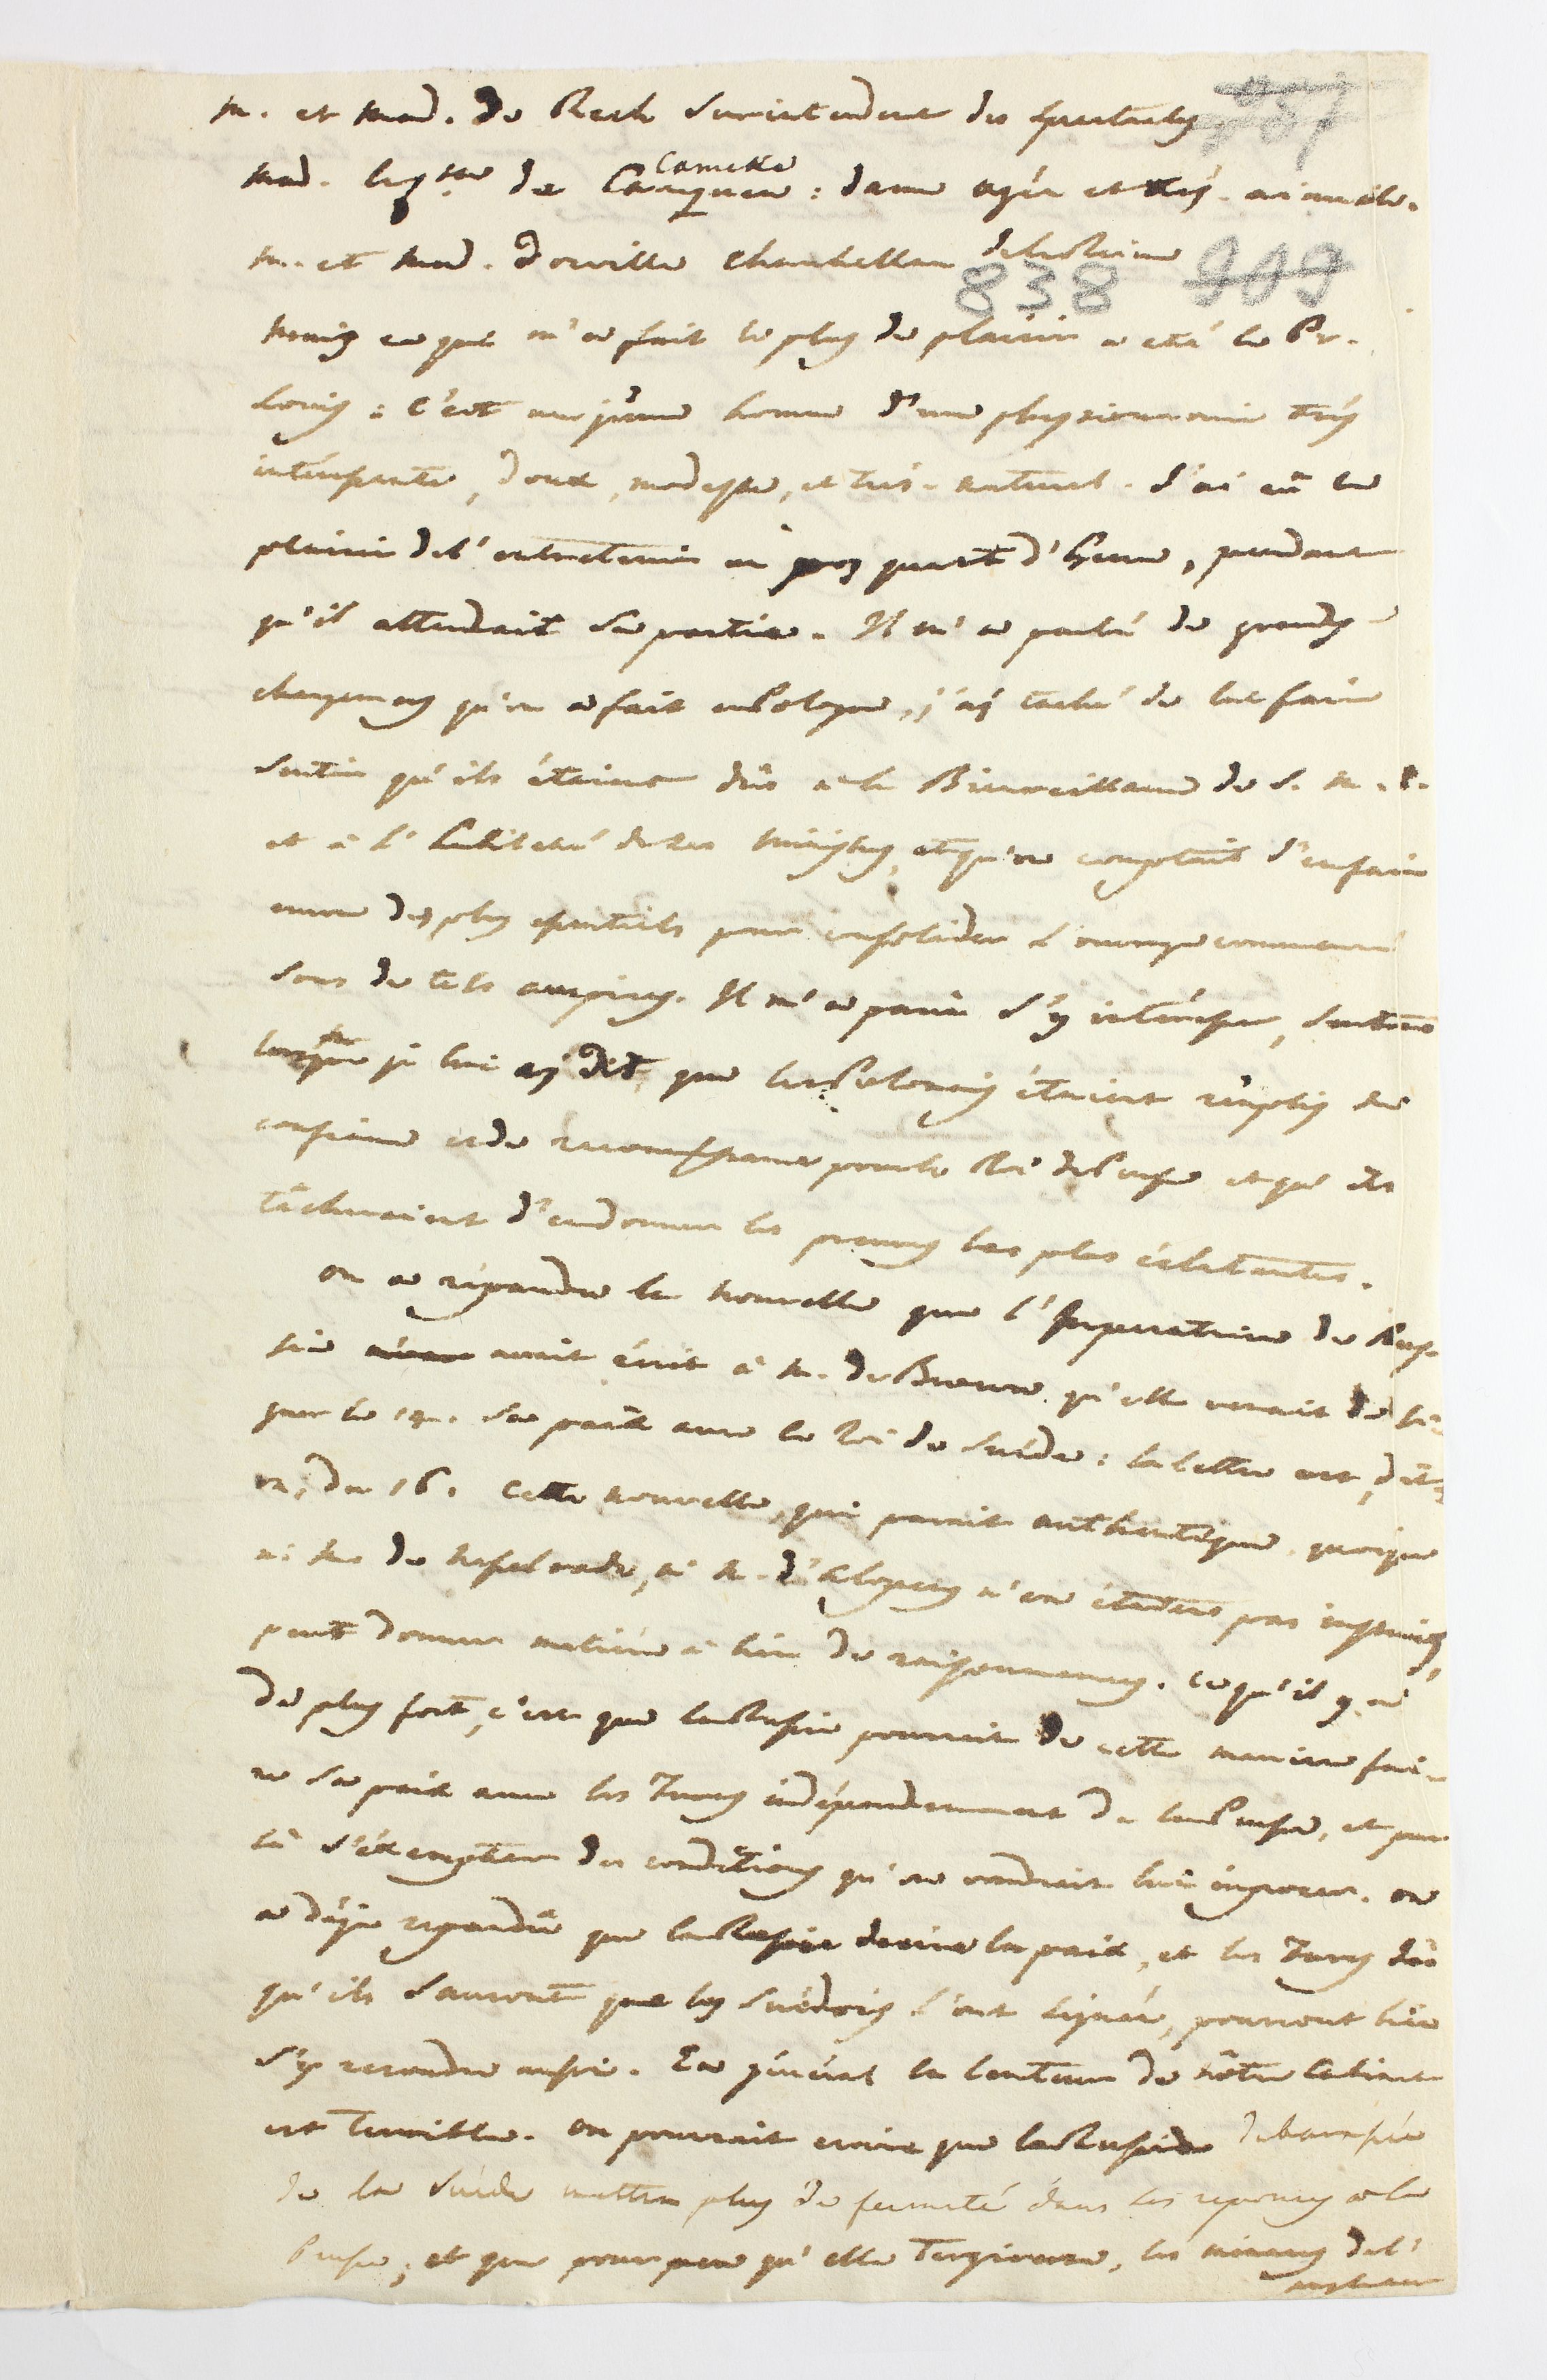 M. et Mad. de Reck Surintendent des spectacles
Mad. la Csse de Cameke : dame agée et très aimable.
M. et Mad. Dorville Chambellan de la Reine
838 909
Mais ce qui m'a fait le plus de plaisir a été le Pr.
Louis : c'est un jeune homme d'une physionomie très
intéressante, doux, modeste, et très-naturel. J'ai eû le
plaisir de l'entretenir un gros quart d'heure, pendant
qu'il attendait sa partie. Il m'a parlé de grands
changemens qu'on a fait en Pologne, j'ai taché de lui faire
sentir qu'ils étaient dûs à la Bienveillance de S. M. P.
et à l'habileté de ses Ministres, et qu'on comptait d'en faire
encore des plus essentiels pour consolider l'ouvrage commencé
sous de tels auspices. Il m'a paru s'y intéresser, surtout
lorsque je lui ai dit, que les Polonais étaient remplis de
confiance et de reconnaissance pour le Roi de Prusse et qu'ils
tâcheraient d'en donner les preuves les plus éclatantes.
On a répandu la nouvelle que l'Impératrice de Rus-
sie avait écrit à M. de Browne qu'elle venait de si-
gner le 14. sa paix avec le Roi de Suède : la lettre est, dit-
on, du 16. Cette nouvelle, qui parait authentique, quoique
ni M. de Nesselrode, ni M. d'Alopeus n'en étaient pas instruits,
peut donner matière à bien de raisonnemens. Ce qu'il y a
de plus fort, c'est que la Russie pourrait de cette maniere fai-
re sa paix avec les Turcs indépendemment de la Prusse, et par
là s'éxempter des conditions qu'on voudrait lui imposer. On
a déja repandû que la Russie desire la paix, et les Turcs dès
qu'ils sauront que les Suédois l'ont signée, pourront bien
s'y resoudre aussi. En général la lenteur de nôtre Cabinet
est terrible. On pourrait croire que la Russie debarassée
de la Suède mettra plus de fermeté dans les reponses à la
Prusse, et que pour peu qu'elle tergiverse, les del'